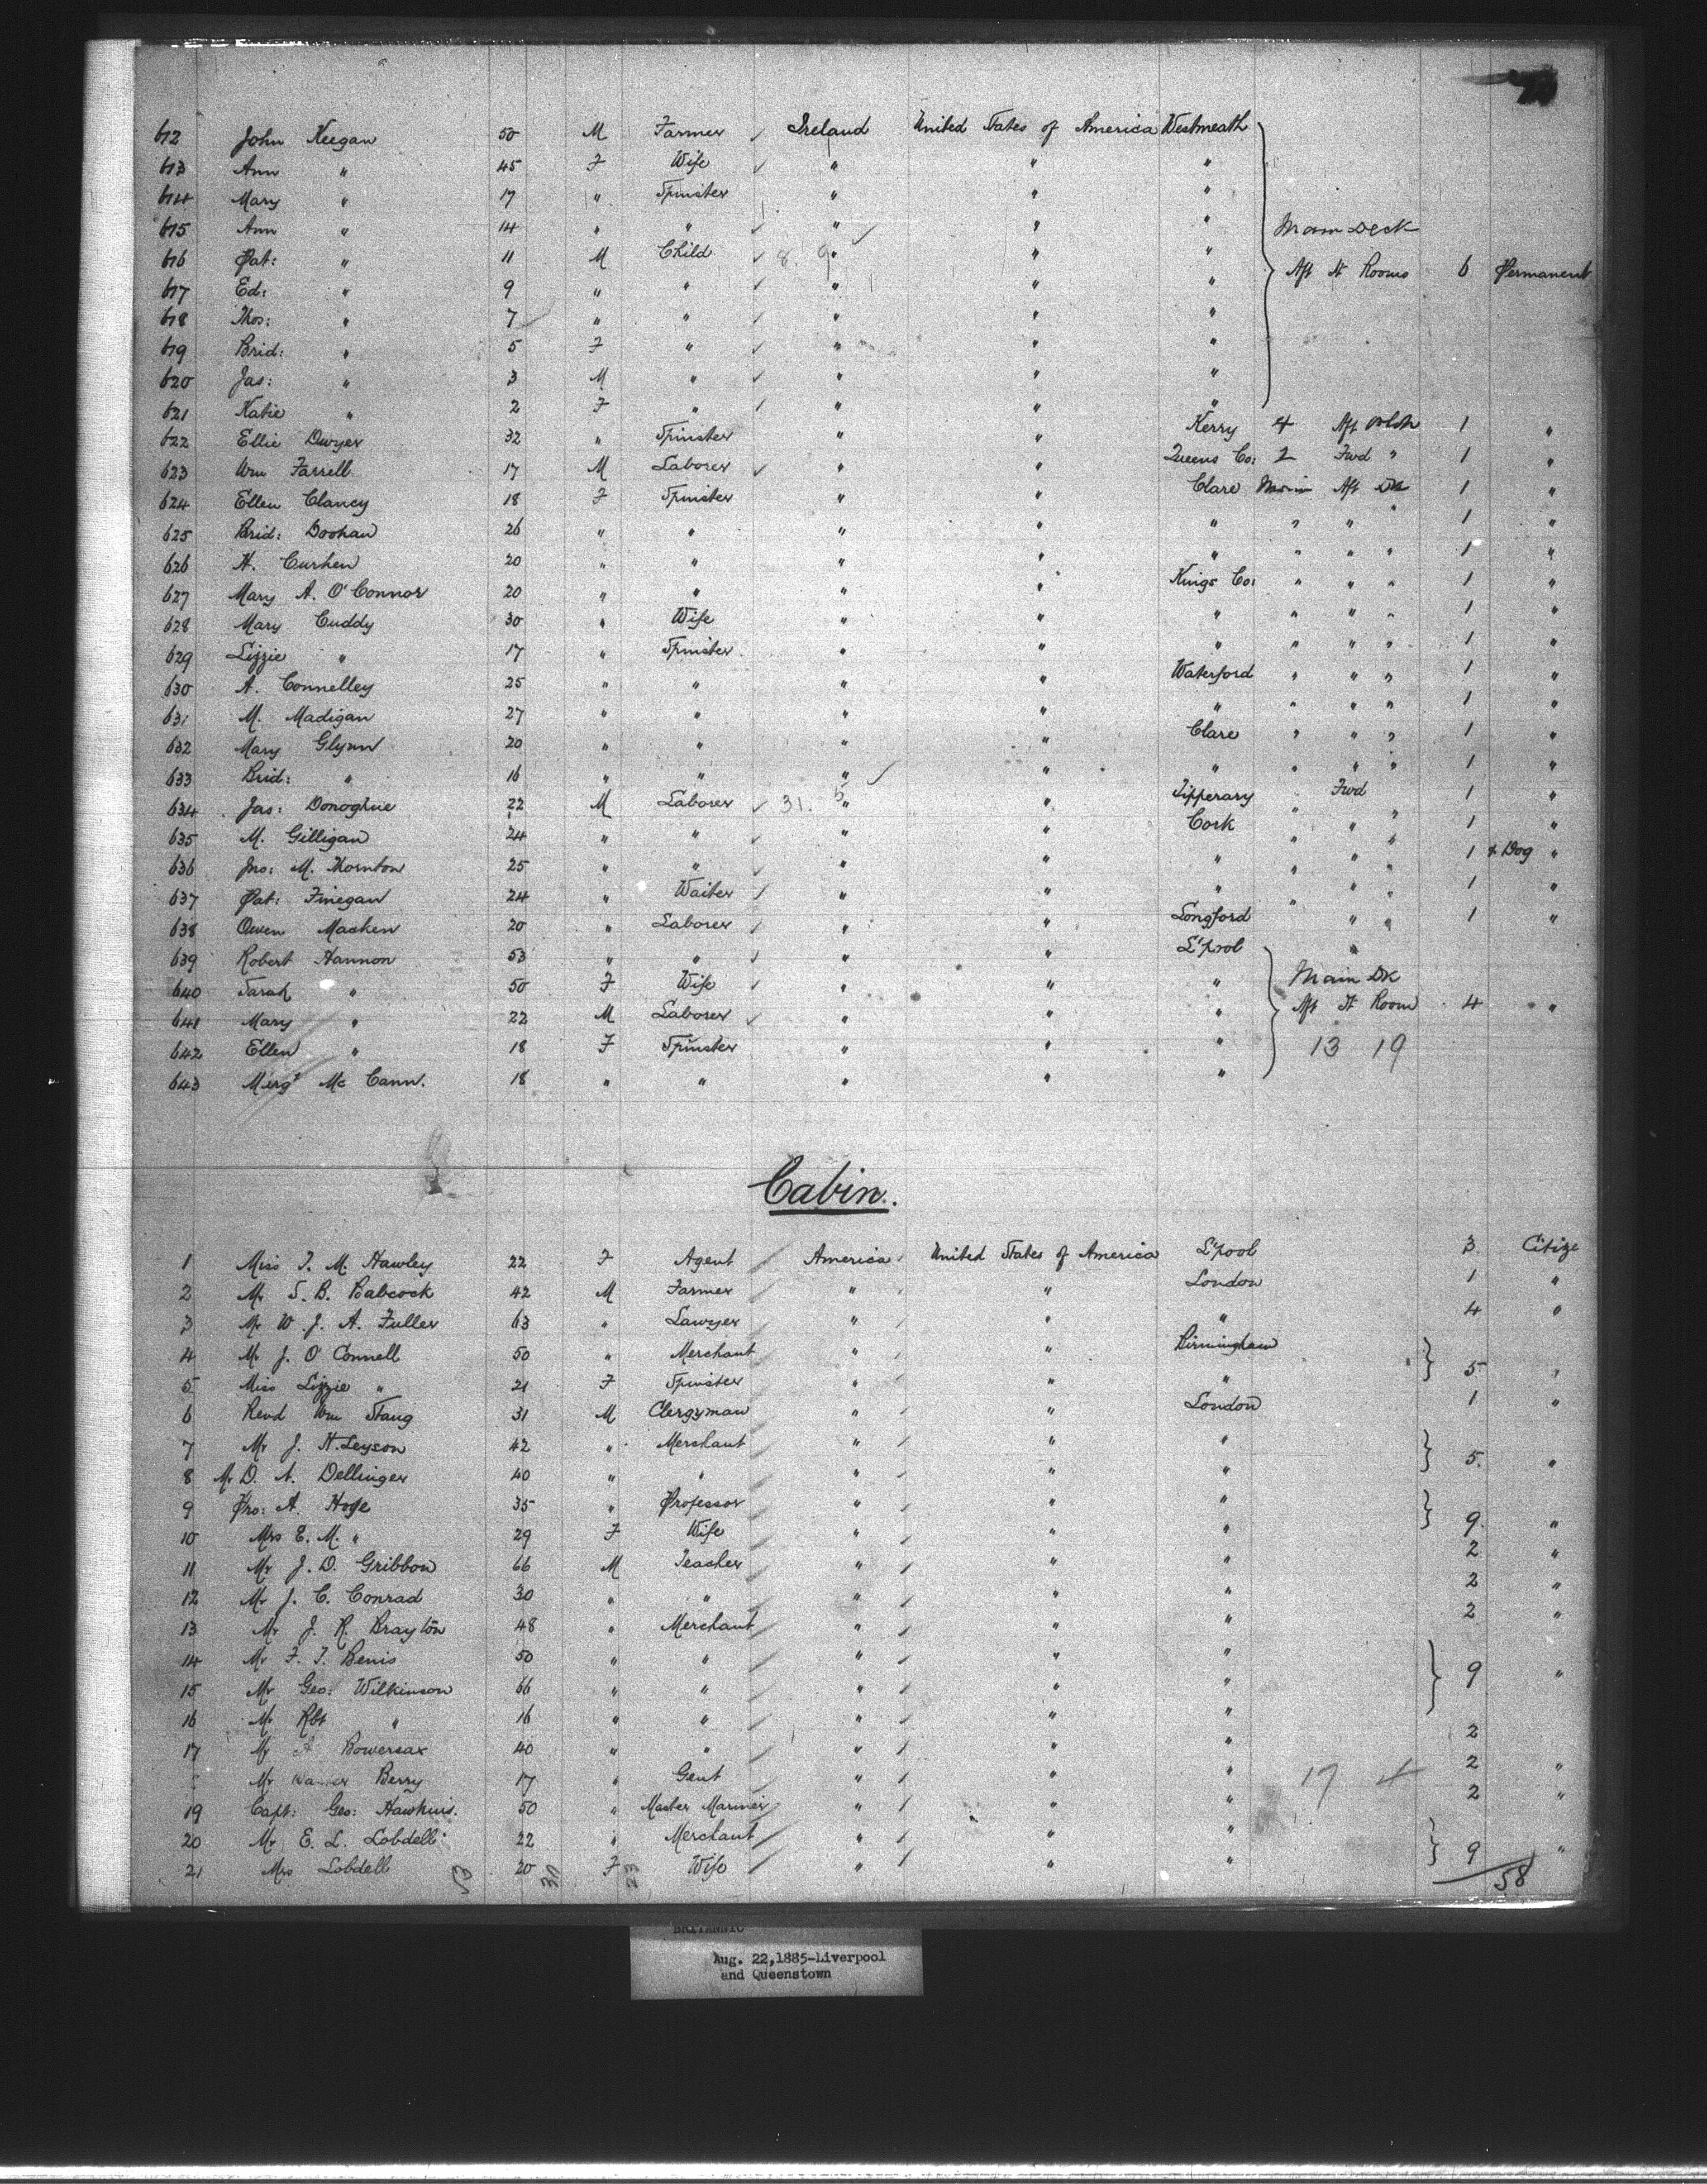 612 John Keegan 50 M Farmer Ireland United States of America Westmeath
613 Ann " 45 F Wife " " "
614 Mary " 17 " Spinster " " "
615 Ann " 14 " " " " " Main Deck
616 Pat: " 11 M Child 8. 9 " " " Aft St Rooms 6 Permanent
617 Ed: " 9 " " " " "
618 Thos: " 7 " " " " "
619 Brid: " 5 F " " " "
620 Jas: " 3 M " " " "
621 Katie " 2 F " " " "
622 Ellie Dwyer 32 " Spinster " " Kerry 4 Aft 1 "
623 Wm Farrell 17 M Laborer " " Queens Co: 2 Fwd " 1 "
624 Ellen Clancy 18 F Spinster " " Clare Main Aft Dk 1 "
625 Brid: Doohan 26 " " " " " " " " 1 "
626 H. Curhen 20 " " " " " " " " 1 "
627 Mary A. O'Connor 20 " " " " Kings Co: " " " 1 "
628 Mary Cuddy 30 " Wife " " " " " " 1 "
629 Lizzie " 17 " Spinster " " " " " " 1 "
630 A. Connelley 25 " " " " Waterford " " " 1 "
631 M. Madigan 27 " " " " " " " " 1 "
632 Mary Glynn 20 " " " " Clare " " " 1 "
633 Brid: " 16 " " " " " " " " 1 "
634 Jas: Donoghue 22 M Laborer 31. 5 " " Tipperary " Fwd " 1 "
635 M. Gilligan 24 " " " " Cork " " " 1 "
636 Jno: M. Thornton 25 " " " " " " " " 1 & Dog "
637 Pat: Finegan 24 " Waiter " " " " " " 1 "
638 Owen Masken 20 " Laborer " " Longford " " " 1 "
639 Robert Hannon 53 " " " " L'pool "
640 Sarah " 50 F Wife " " " Main Dk
641 Mary " 22 M Laborer " " " Aft St Room 4 "
642 Ellen " 18 F Spinster " " " 13 19
643 Margt Mc Cann. 18 " " " " "
Cabin.
1 Miss T. M. Hawley 22 F Agent America United States of America L'pool 3 Citize
2 Mr S. B. Babcock 42 M Farmer " " London 1 "
3 Mr W. J. A. Fuller 63 " Lawyer " " " 4 "
4 Mr J. O'Connell 50 " Merchant " " Birmingham
5 Miss Lizzie " 21 F Spinster " " " 5 "
6 Revd Wm Stang 31 M Clergyman " " London 1 "
7 Mr J. H. Leyson 42 " Merchant " " "
8 Mr D. A. Dellinger 40 " " " " " 5. "
9 Pro: A. Hoge 35 " Professor " " "
10 Mrs E. M. " 29 F Wife " " " 9. "
11 Mr J. D. Gribbon 66 M Teacher " " " 2 "
12 Mr J. C. Conrad 30 " " " " " 2 "
13 Mr J. R. Brayton 48 " Merchant " " " 2 "
14 Mr F. T. Benis 50 " " " " "
15 Mr Geo: Wilkinson 66 " " " " " 9 "
16 Mr Rbt " 16 " " " " "
17 Mr A Bowersax 40 " " " " " 2
Mr Walter Berry 17 " Gent " " " 17 4 2 "
19 Capt: Geo: Hawkins. 50 " Master Mariner " " " 2 "
20 Mr E. L. Lobdell 22 " Merchant " " "
21 Mrs Lobdell 20 F Wife " " " 9 "
53 30 23 58
BRITANNIC
Aug. 22,1885-Liverpool
and Queenstown